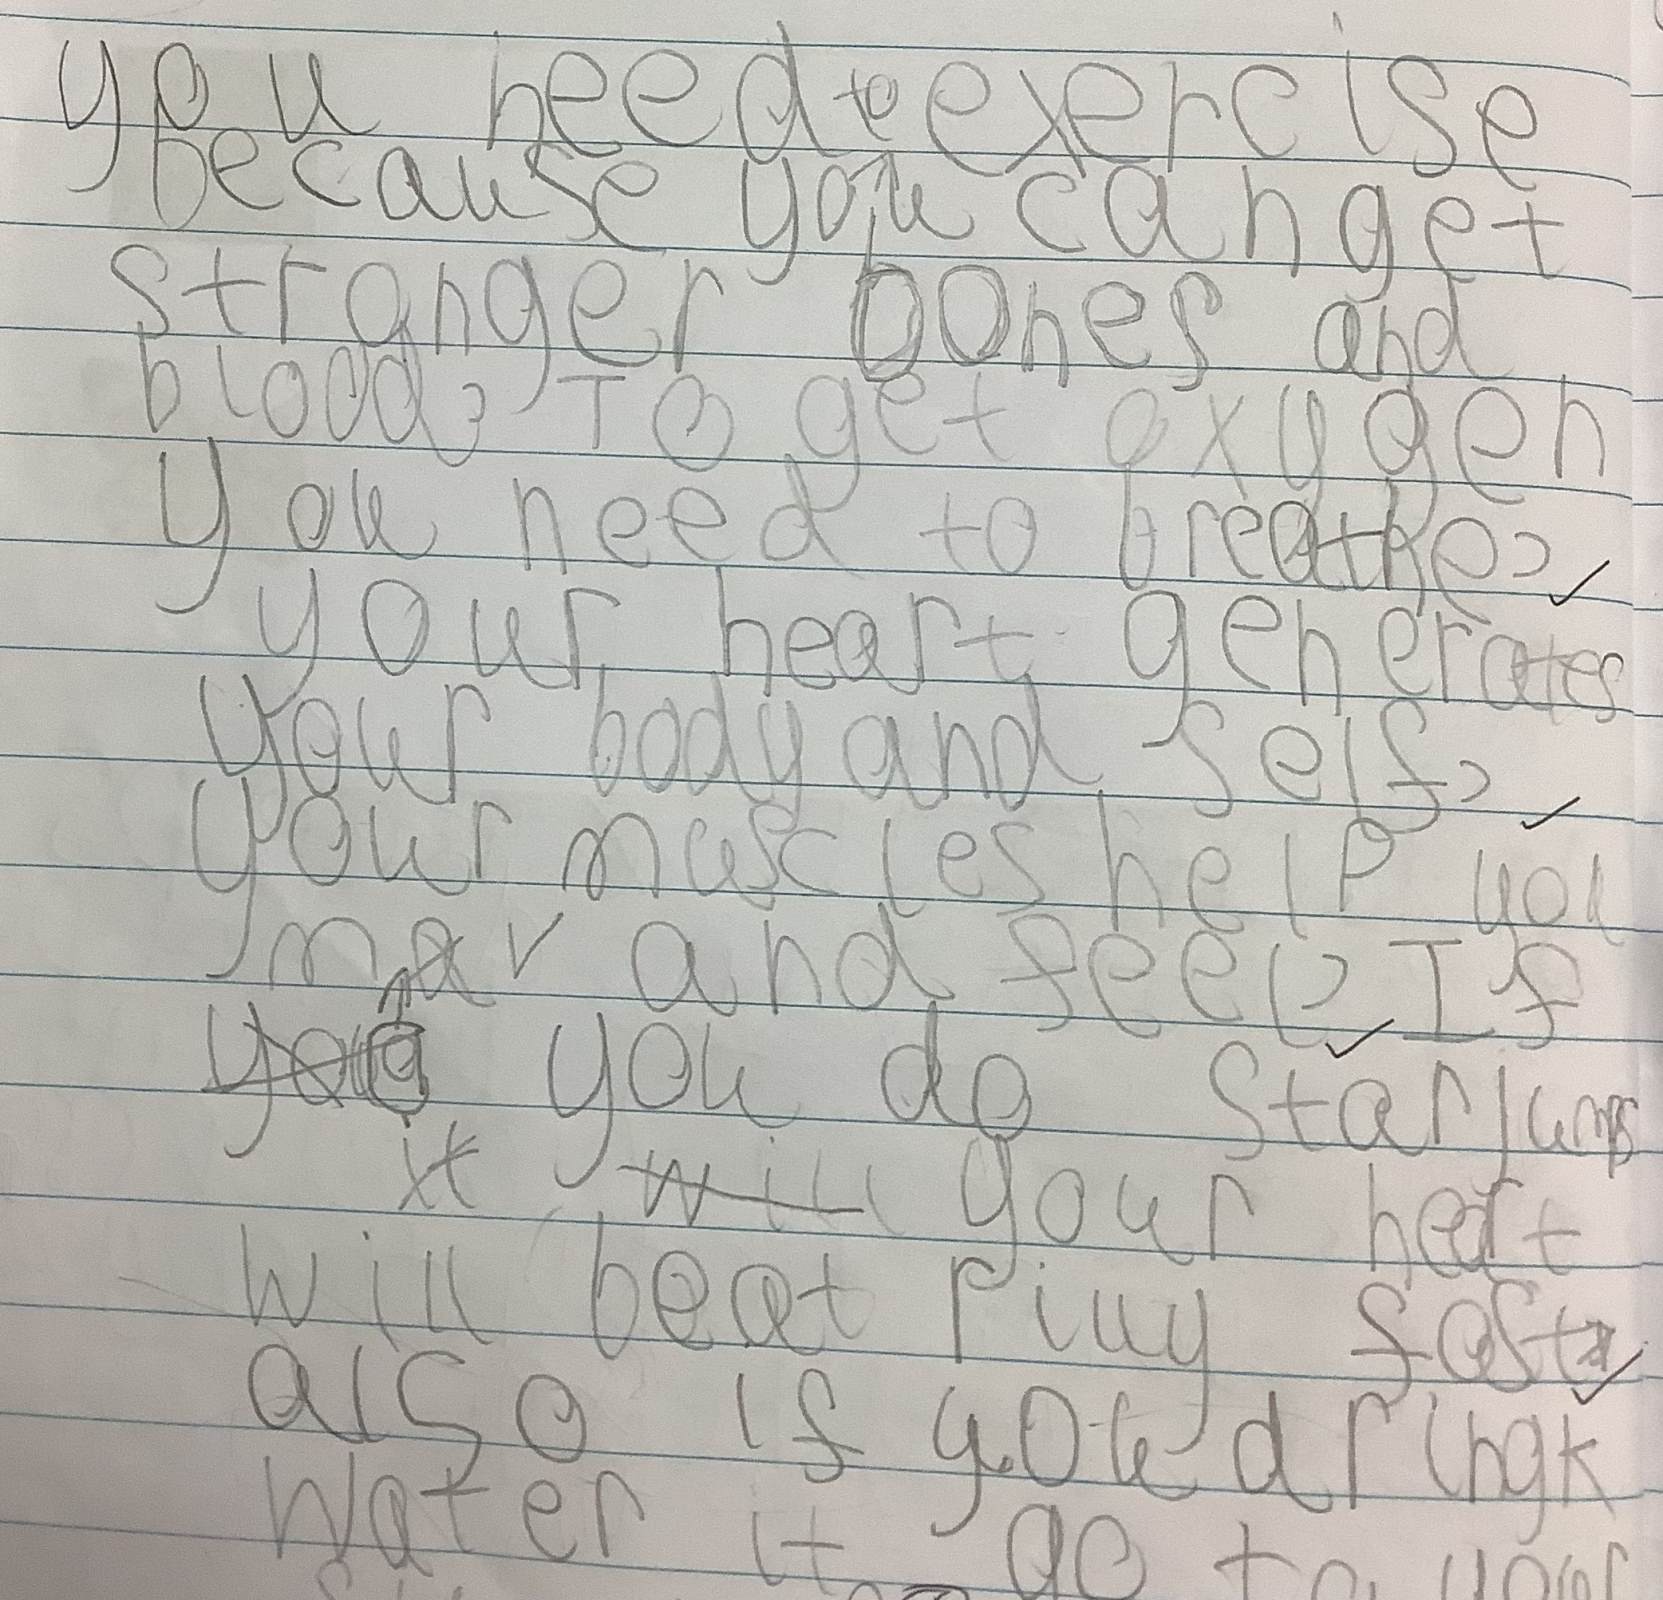 you need to exercise
because you can get
stranger bones and
blood. To get oxygen
you need to breathe.
your heart generates
your body and self.
your muscles help you
mav and feel. If
you do starjumps
it will your heart
will beat rilly fast.
also if you dringk
water it go to your